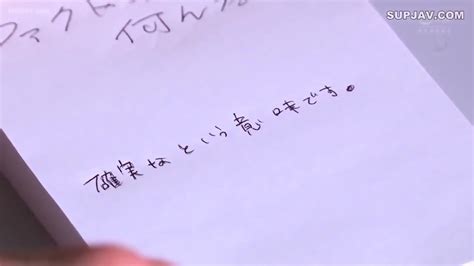 SUPJAV.COM
ファクト
何ん
確実なという意味です。